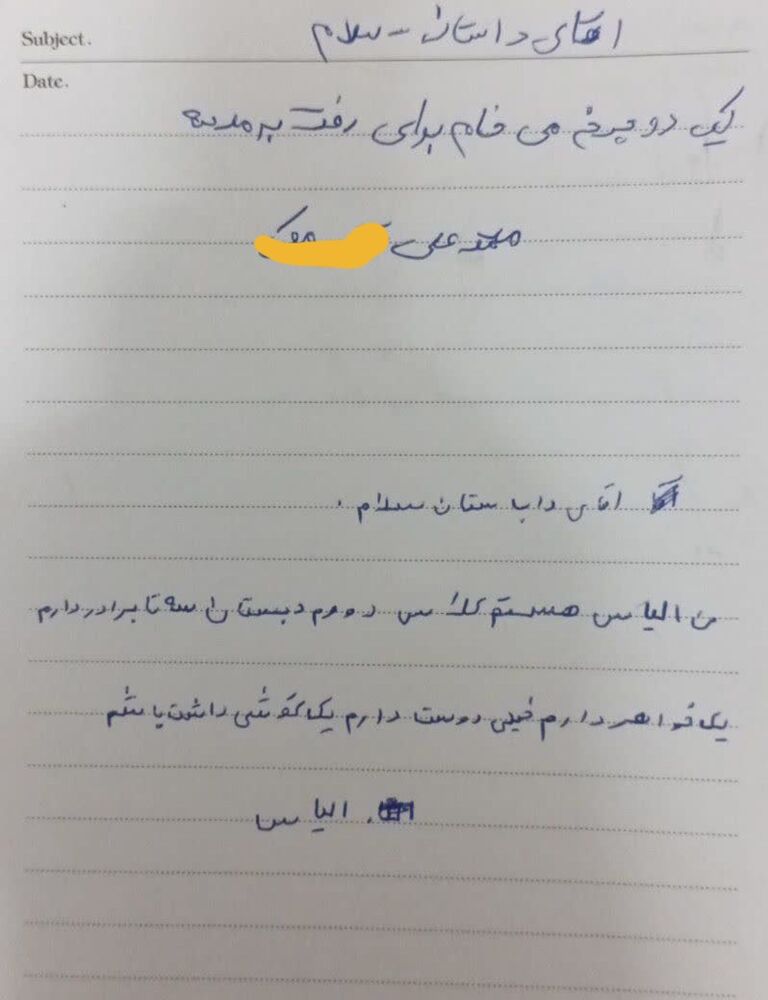 Subject.
اقای داستان - سلام
Date.
یک دو چرخ می خام برای رفت به مدسه
محمد علی
اقای داب ستان سلام .
من الیاس هستم کلاس دووم دبستان سه تا برادر دارم
یک خواهر دارم خیلی دوست دارم یک گوشی داشت باشم
الیاس